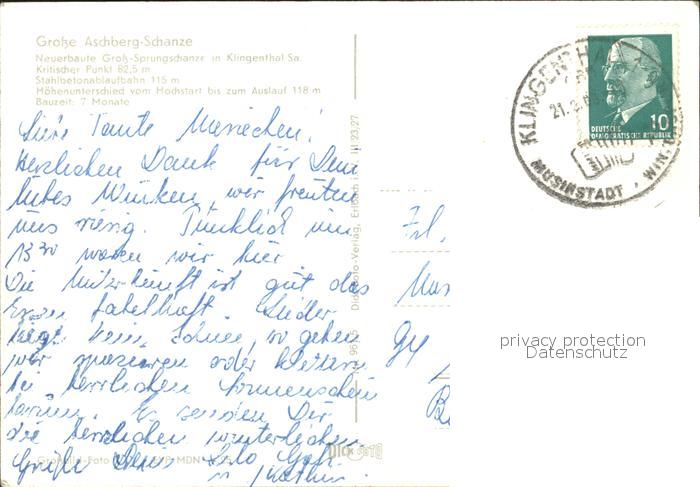 Große Aschberg-Schanze
Neuerbaute Groß-Sprungschanze in Klingenthal Sa.
Kritischer Punkt 82,5 m
Stahlbetonablaufbahn 115 m
Höhenunterschied vom Hochstart bis zum Auslauf 118 m
Bauzeit: 7 Monate
Liebe Tante Mariechen!
Herzlichen Dank für Dein
liebes Winken, wir freuten
uns riesig. Pünktlich um
13 30 waren wir hier
Die Unterkunft ist gut das
Essen fabelhaft. Leider
liegt kein Schnee, so gehen
wir spazieren oder klettern
bei herrlichen Sonnenschein
herum. Es senden Dir
die herzlichen winterlichen
Grüße Deine
KLINGENTHAL
MUSIKSTADT
10
DEUTSCHE
DEMOKRATISCHE REPUBLIK
Frl.
privacy protection
Datenschutz